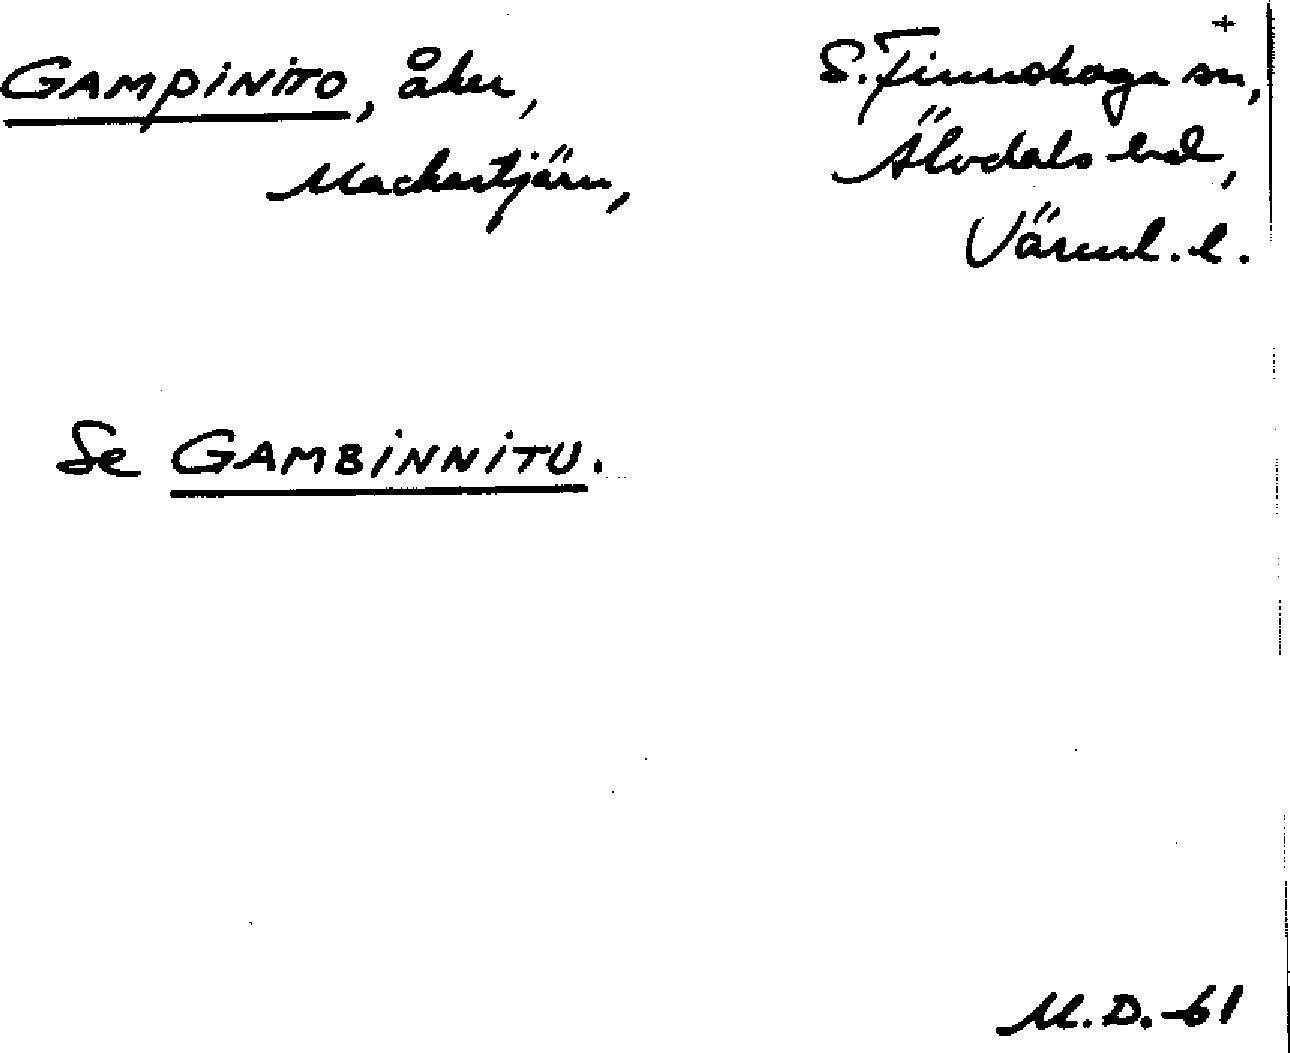 GAMPINITO, åker, S. Finnskoga sn, +
Mackartjärn, Älvdals hd,
Värml. l.
Se GAMBINNITU.
M.D.-61